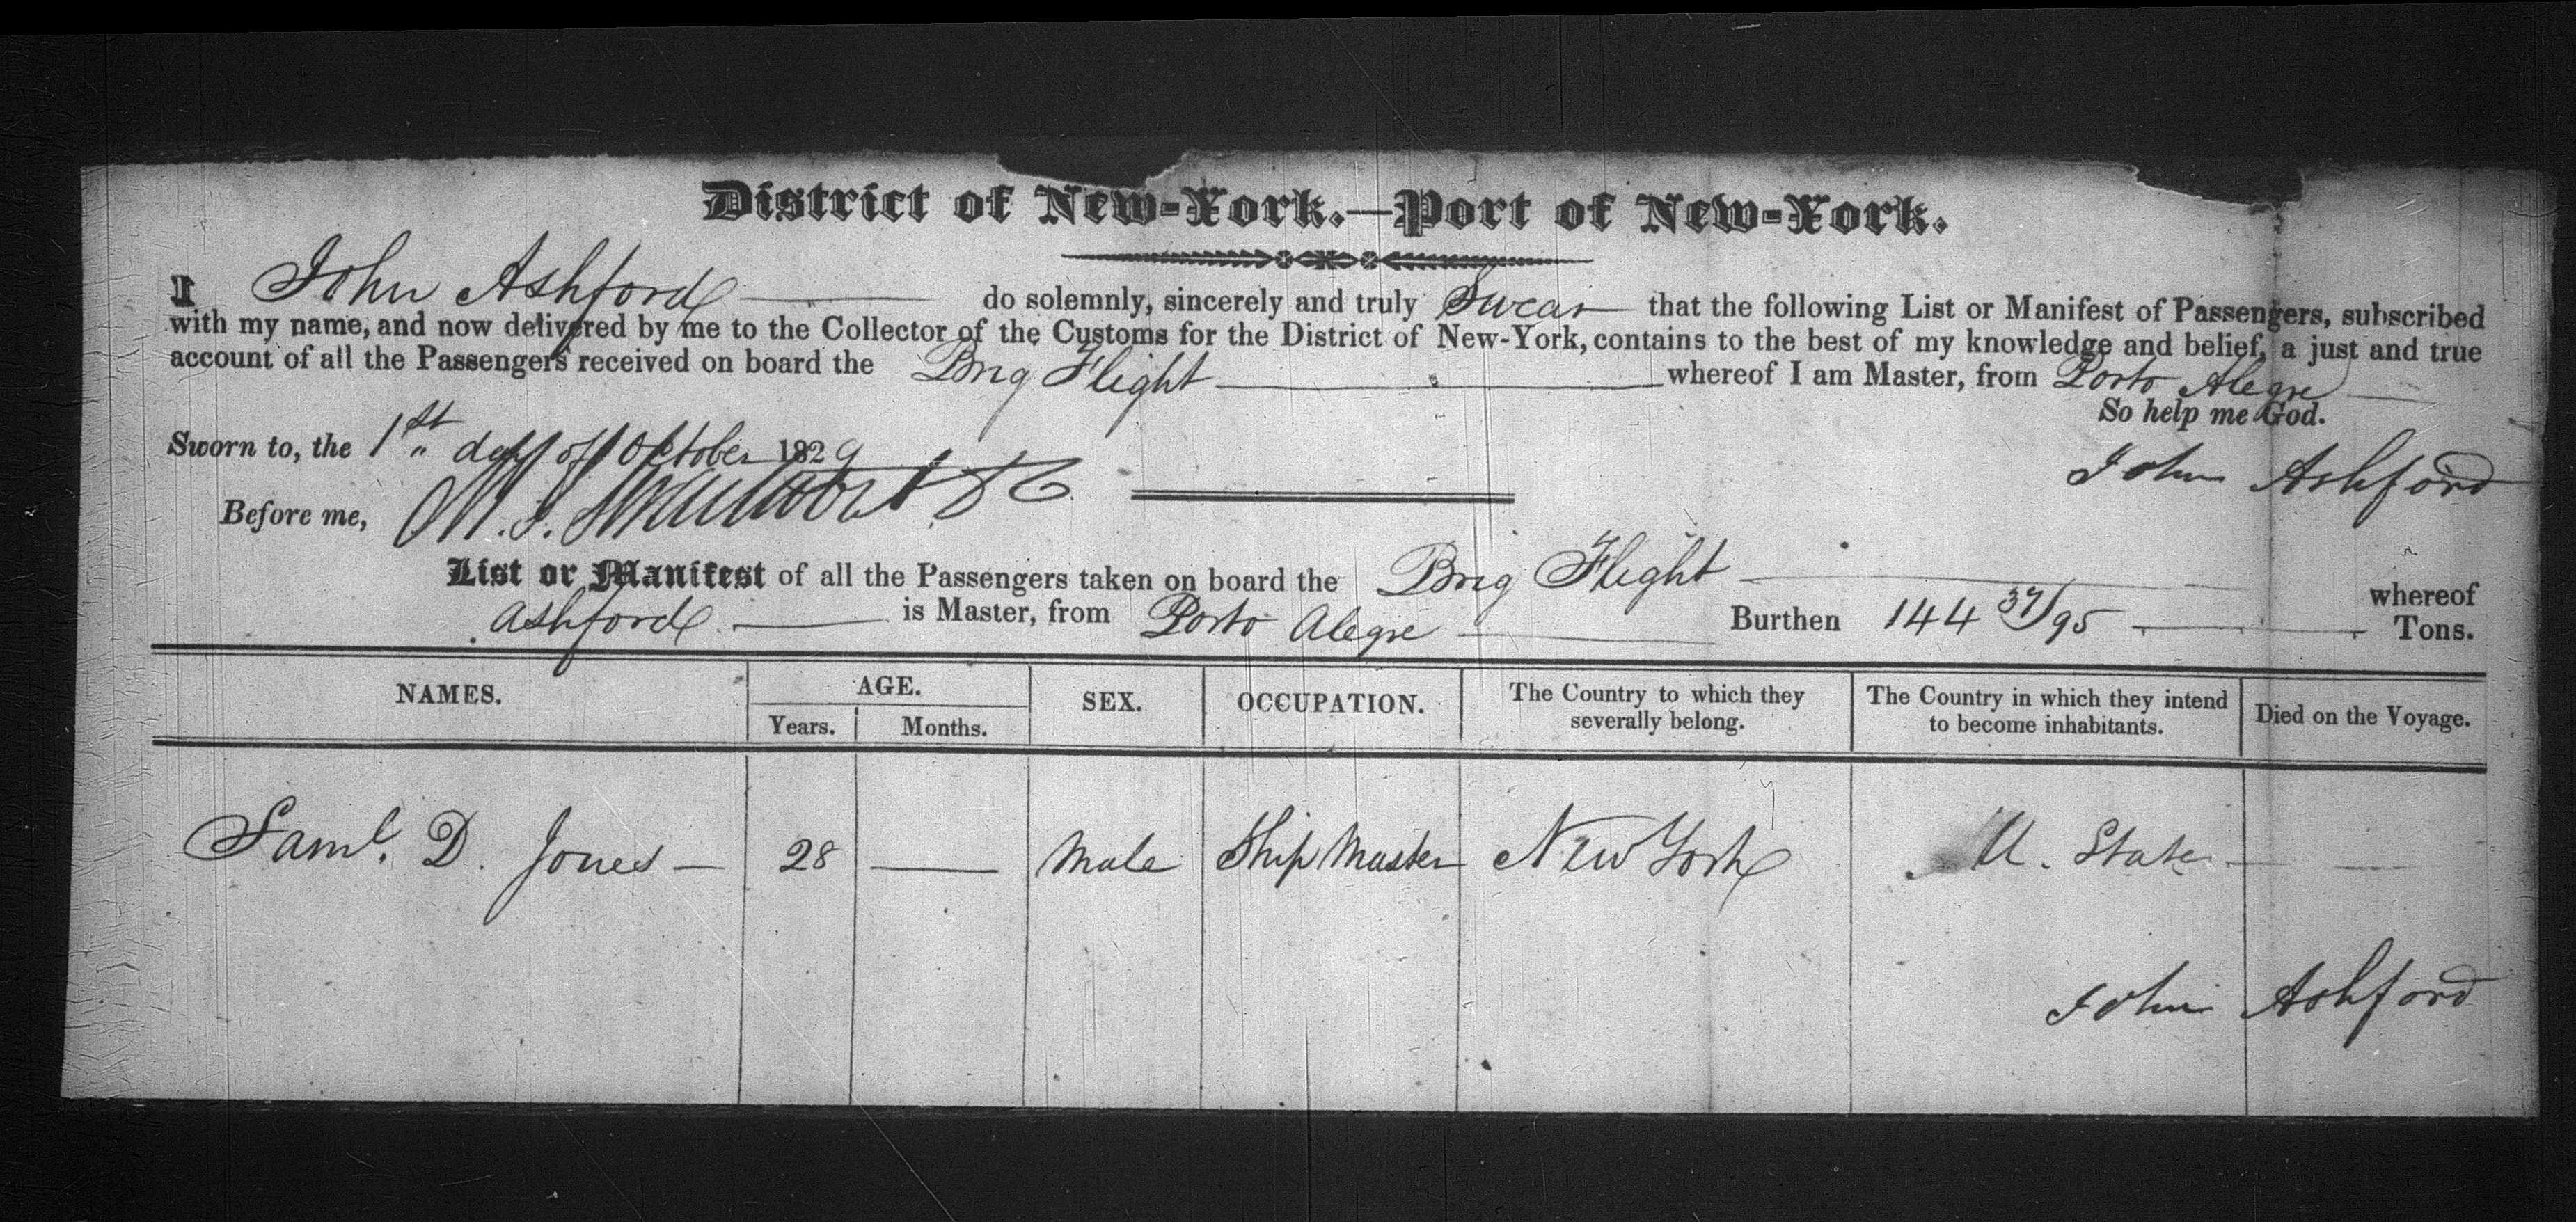 District of New-York.—Port of New-York.
I John Ashford do solemnly, sincerely and truly Swear that the following List or Manifest of Passengers, subscribed
with my name, and now delivered by me to the Collector of the Customs for the District of New-York, contains to the best of my knowledge and belief, a just and true
account of all the Passengers received on board the Brig Flight whereof I am Master, from Porto Alegre
So help me God.
Sworn to, the 1st day of October 1829
John Ashford
Before me,
List or Manifest of all the Passengers taken on board the Brig Flight whereof
Ashford is Master, from Porto Alegre Burthen 144 37/95 Tons.
NAMES. AGE. SEX. OCCUPATION. The Country to which they severally belong. The Country in which they intend to become inhabitants. Died on the Voyage.
Years. Months.
Saml. D. Jones — 28 — Male Ship Master New York U. States — —
John Ashford